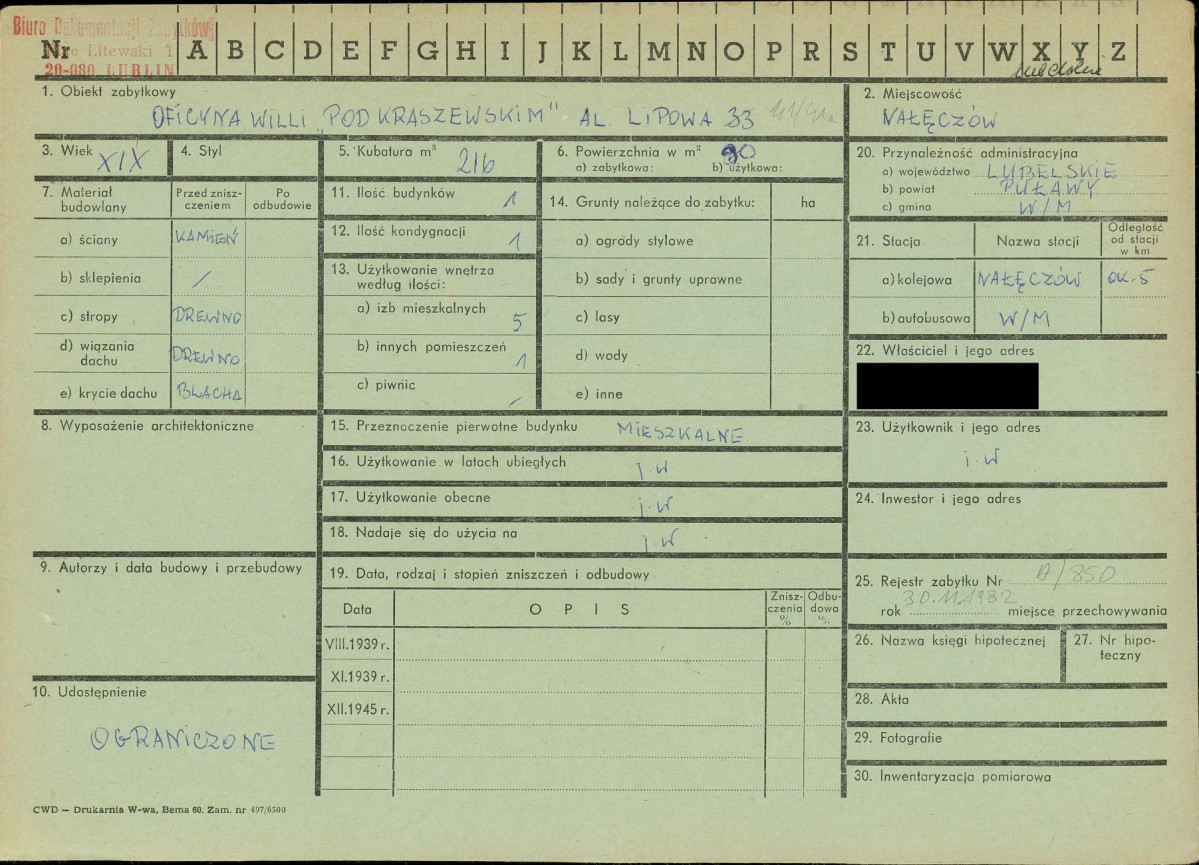 Biuro Dokumentacji Zabytków
Nr A B C D E F G H I J K L M N O P R S T U V W X Y Z
20-080 LUBLIN
1. Obiekt zabytkowy
OFICYNA WILLI „POD KRASZEWSKIM" AL. LIPOWA 33
2. Miejscowość
NAŁĘCZÓW
3. Wiek XIX
4. Styl
5. Kubatura m³ 216
6. Powierzchnia w m² 90
a) zabytkowa: b) użytkowa:
20. Przynależność administracyjna
a) województwo LUBELSKIE
b) powiat PUŁAWY
c) gmina W/M
7. Materiał budowlany
Przed zniszczeniem
Po odbudowie
a) ściany KAMIEŃ
b) sklepienia /
c) stropy DREWNO
d) wiązania dachu DREWNO
e) krycie dachu BLACHA
11. Ilość budynków 1
12. Ilość kondygnacji 1
13. Użytkowanie wnętrza
według ilości:
a) izb mieszkalnych 5
b) innych pomieszczeń 1
c) piwnic –
14. Grunty należące do zabytku: ha
a) ogrody stylowe
b) sady i grunty uprawne
c) lasy
d) wody
e) inne
21. Stacja
Nazwa stacji
Odległość od stacji w km
a) kolejowa NAŁĘCZÓW OK. 5
b) autobusowa W/M
22. Właściciel i jego adres
8. Wyposażenie architektoniczne
15. Przeznaczenie pierwotne budynku MIESZKALNE
16. Użytkowanie w latach ubiegłych j.w
17. Użytkowanie obecne j.w
18. Nadaje się do użycia na j.w
23. Użytkownik i jego adres
j.w
24. Inwestor i jego adres
9. Autorzy i data budowy i przebudowy
19. Data, rodzaj i stopień zniszczeń i odbudowy
Data OPIS Zniszczenia % Odbudowa %
VIII.1939 r.
XI.1939 r.
XII.1945 r.
25. Rejestr zabytku Nr A/850
30.11.1982
rok miejsce przechowywania
26. Nazwa księgi hipotecznej
27. Nr hipoteczny
10. Udostępnienie
OGRANICZONE
28. Akta
29. Fotografie
30. Inwentaryzacja pomiarowa
CWD — Drukarnia W-wa, Bema 60. Zam. nr 497/6500